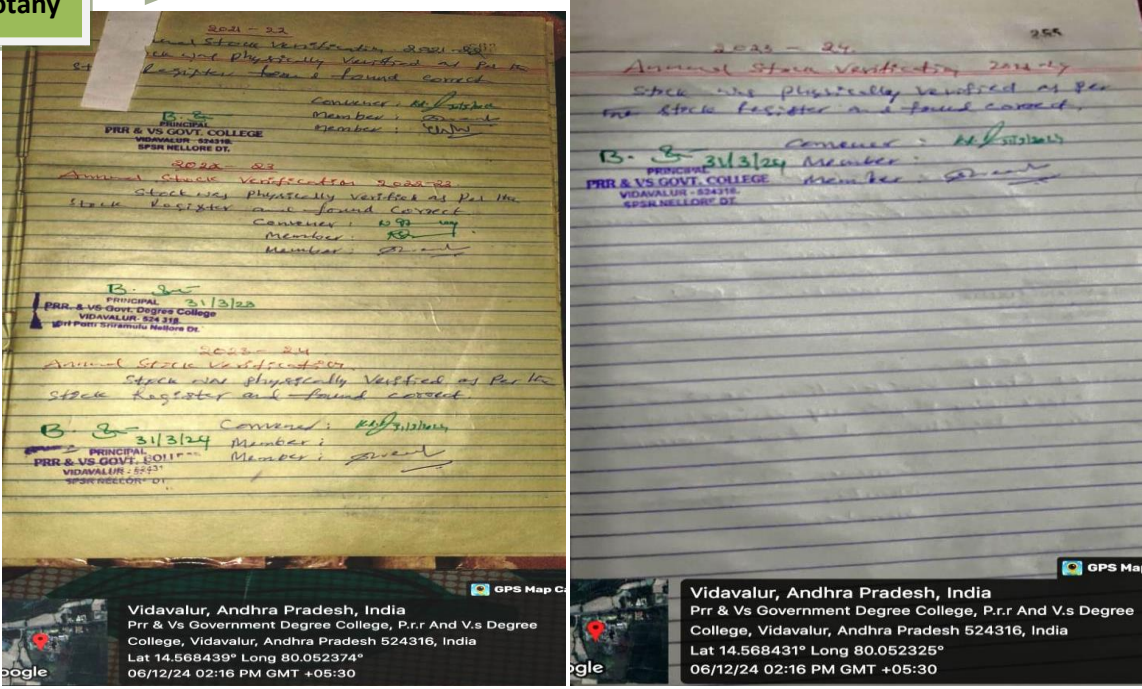 otany
2021 - 22
Stock Verification 2021-22
was physically Verified as Per the
Register found correct
Convener :
Member :
Member :
B.
PRINCIPAL
PRR & VS GOVT. COLLEGE
VIDAVALUR - 524318.
SPSR NELLORE DT.
2022 - 23
Annual Stock Verification 2022-23
Stock was physically verified as Per the
Stock Register and found correct
Convener :
Member :
Member :
B.
PRINCIPAL 31/3/23
PRR. & VS Govt. Degree College
VIDAVALUR- 524 318
Sri Potti Sriramulu Nellore Dt.
2023 - 24
Annual Stock Verification
Stock was physically Verified as Per the
Stock Register and found correct.
B. Convener :
31/3/24 Member :
PRINCIPAL Member :
PRR & VS GOVT.
VIDAVALUR - 52431
SPSR NELLORE DT
GPS Map Ca
Vidavalur, Andhra Pradesh, India
Prr & Vs Government Degree College, P.r.r And V.s Degree
College, Vidavalur, Andhra Pradesh 524316, India
Lat 14.568439° Long 80.052374°
06/12/24 02:16 PM GMT +05:30
oogle
255
2023 - 24.
Annual Stock Verification
Stock was physically verified as per
the stock Register and found correct.
Convener :
B. 31/3/24 Member :
PRINCIPAL Member :
PRR & VS GOVT. COLLEGE
VIDAVALUR - 524318.
SPSR NELLORE DT.
GPS Map
Vidavalur, Andhra Pradesh, India
Prr & Vs Government Degree College, P.r.r And V.s Degree
College, Vidavalur, Andhra Pradesh 524316, India
Lat 14.568431° Long 80.052325°
06/12/24 02:16 PM GMT +05:30
gle